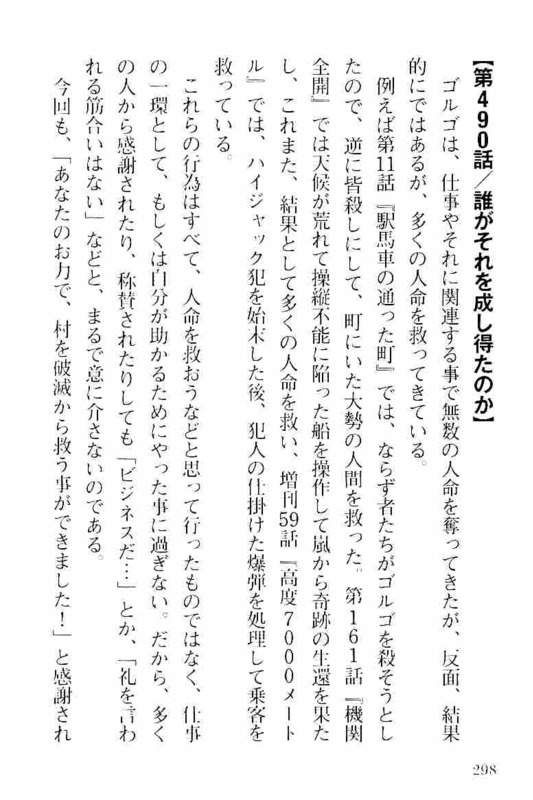 【第490話／誰がそれを成し得たのか】
ゴルゴは、仕事やそれに関連する事で無数の人命を奪ってきたが、反面、結果
的にではあるが、多くの人命を救ってきている。
例えば第11話『駅馬車の通った町』では、ならず者たちがゴルゴを殺そうとし
たので、逆に皆殺しにして、町にいた大勢の人間を救った。第161話『機関
全開』では天候が荒れて操縦不能に陥った船を操作して嵐から奇跡の生還を果た
し、これまた、結果として多くの人命を救い、増刊59話『高度7000メート
ル』では、ハイジャック犯を始末した後、犯人の仕掛けた爆弾を処理して乗客を
救っている。
これらの行為はすべて、人命を救おうなどと思って行ったものではなく、仕事
の一環として、もしくは自分が助かるためにやった事に過ぎない。だから、多く
の人から感謝されたり、称賛されたりしても「ビジネスだ…」とか、「礼を言わ
れる筋合いはない」などと、まるで意に介さないのである。
今回も、「あなたのお力で、村を破滅から救う事ができました！」と感謝され
298